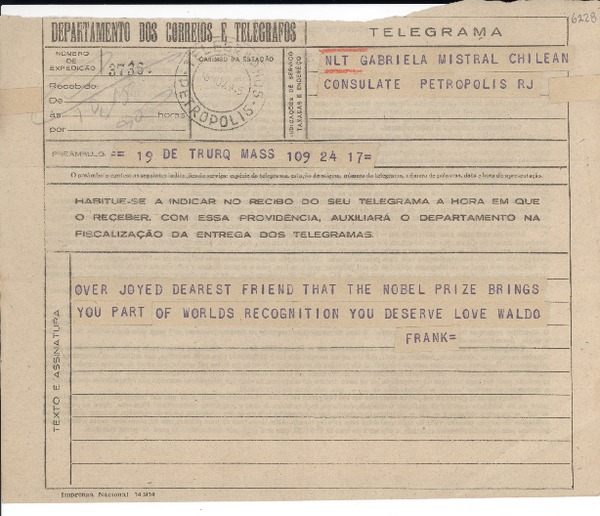 6228
DEPARTAMENTO DOS CORREIOS E TELEGRAFOS
TELEGRAMA
NÚMERO DE EXPEDIÇÃO
3736
Recebido:
De
às horas
por
CARIMBO DA ESTAÇÃO
PETROPOLIS
INDICAÇÕES DE SERVIÇO TAXADAS E ENDEREÇO
NLT GABRIELA MISTRAL CHILEAN
CONSULATE PETROPOLIS RJ
PREÂMBULO == 19 DE TRURQ MASS 109 24 17=
O preâmbulo contem as seguintes indicações de serviço: espécie do telegrama, estação de origem, número do telegrama, número de palavras, data e hora da apresentação.
HABITUE-SE A INDICAR NO RECIBO DO SEU TELEGRAMA A HORA EM QUE
O RECEBER. COM ESSA PROVIDÊNCIA, AUXILIARÁ O DEPARTAMENTO NA
FISCALIZAÇÃO DA ENTREGA DOS TELEGRAMAS.
TEXTO E ASSINATURA
OVER JOYED DEAREST FRIEND THAT THE NOBEL PRIZE BRINGS
YOU PART OF WORLDS RECOGNITION YOU DESERVE LOVE WALDO
FRANK=
Imprensa Nacional